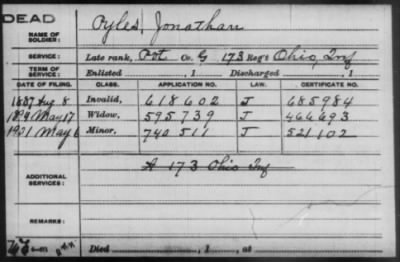 DEAD
NAME OF SOLDIER: Pyles, Jonathan
SERVICE: Late rank, Pvt Co. G 173 Reg't Ohio, Inf
TERM OF SERVICE: Enlisted , 1 Discharged , 1
DATE OF FILING. CLASS. APPLICATION NO. LAW. CERTIFICATE NO.
1887 Aug 8 Invalid, 618602 J 685984
May 17 Widow, 595739 J 466693
1901 May 6 Minor, 740511 J 521102
ADDITIONAL SERVICES: A 173 Ohio Inf
REMARKS:
Died , 1 , at